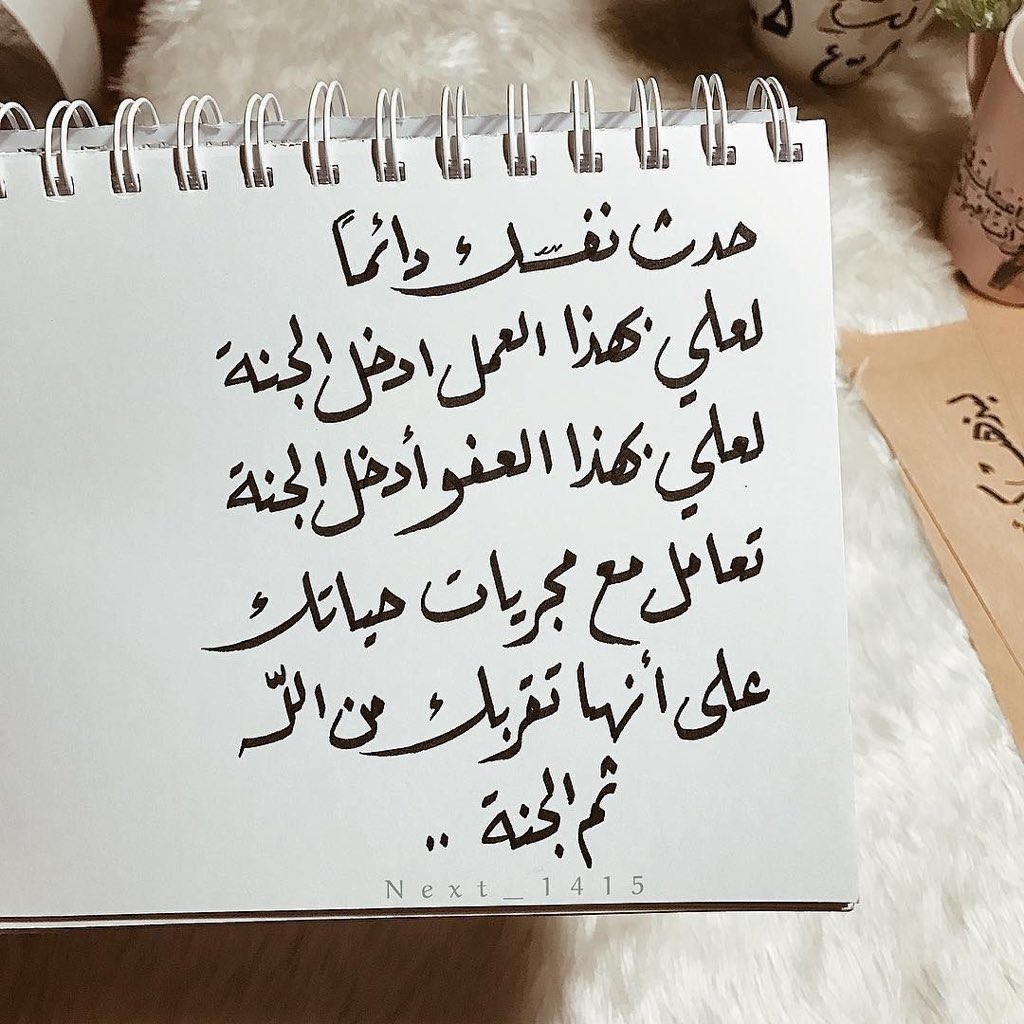 حدث نفسك دائماً
لعلي بهذا العمل ادخل الجنة
لعلي بهذا العفو أدخل الجنة
تعامل مع مجريات حياتك
على أنها تقربك من اللّه
ثم الجنة ..
Next_1415